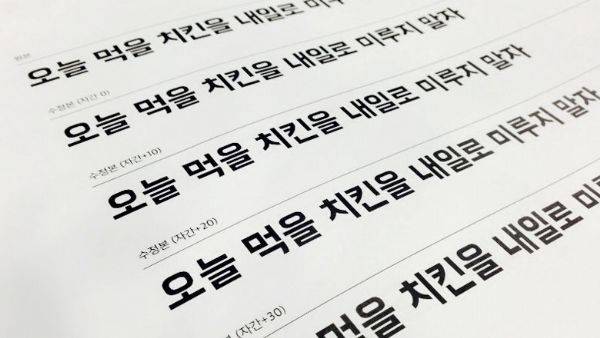 원본
오늘 먹을 치킨을 내일로 미루
수정본 (자간 0)
오늘 먹을 치킨을 내일로 미루지 말자
수정본 (자간+10)
오늘 먹을 치킨을 내일로 미루지 말자
수정본 (자간+20)
오늘 먹을 치킨을 내일로 미루지 말자
본 (자간+30)
먹을 치킨을 내일로 미루